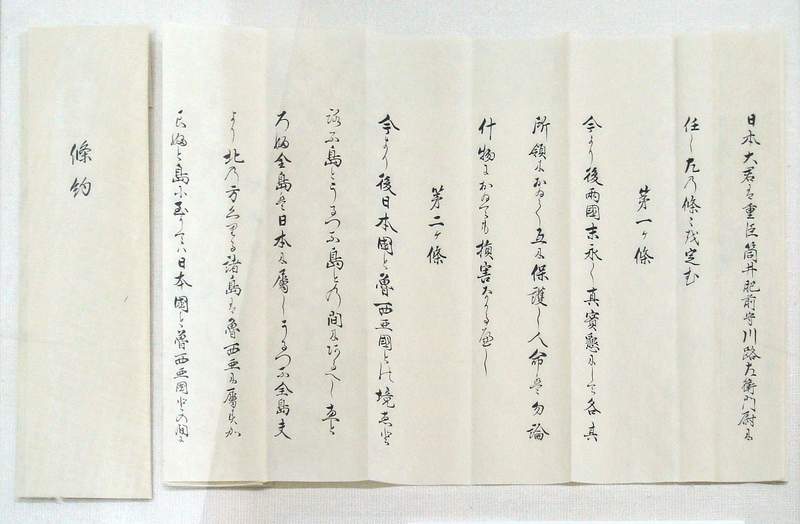 日本大君は重臣筒井肥前守川路左衛門尉に
任し左の條々を定む
第一ヶ條
今より後兩國末永く真實懇にして各其
所領におゐて互に保護し人命は勿論
什物におゐても損害なかるへし
第二ヶ條
今より後日本國と魯西亜國との境ゑと
ろふ島とうるつふ島との間にあるへしゑと
ろふ全島は日本に属しうるつふ全島夫
より北の方くりる諸島は魯西亜に属すか
らふと島に至りては日本國と魯西亜國との間に
條約